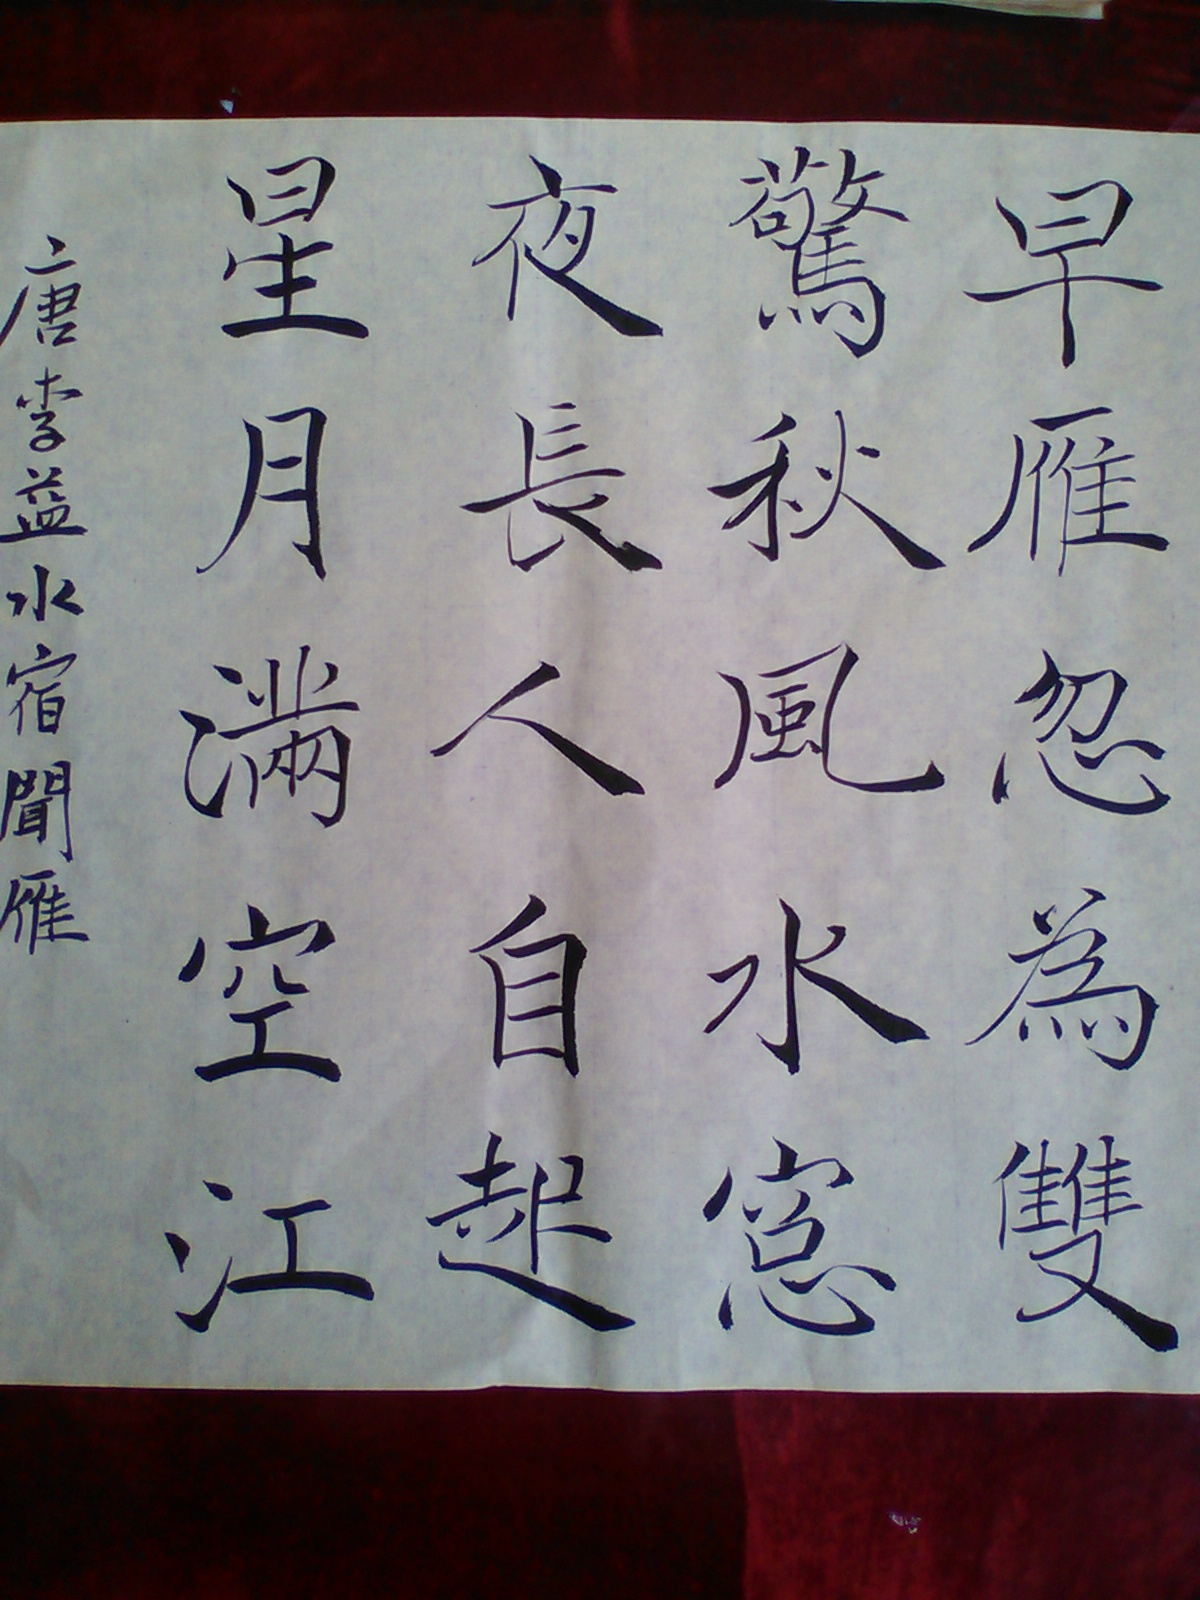 早雁忽為雙
驚秋風水窓
夜長人自起
星月滿空江
唐李益水宿聞雁